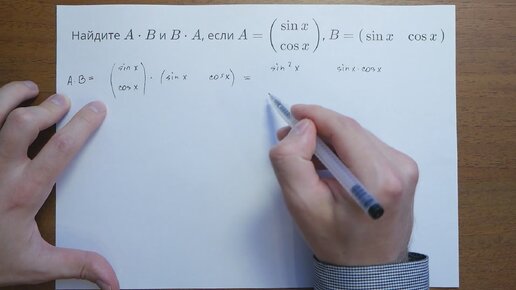 Найдите A · B и B · A, если A = (sin x cos x), B = (sin x cos x)
A·B = (sin x cos x) · (sin x cos x) = sin²x sin x · cos x